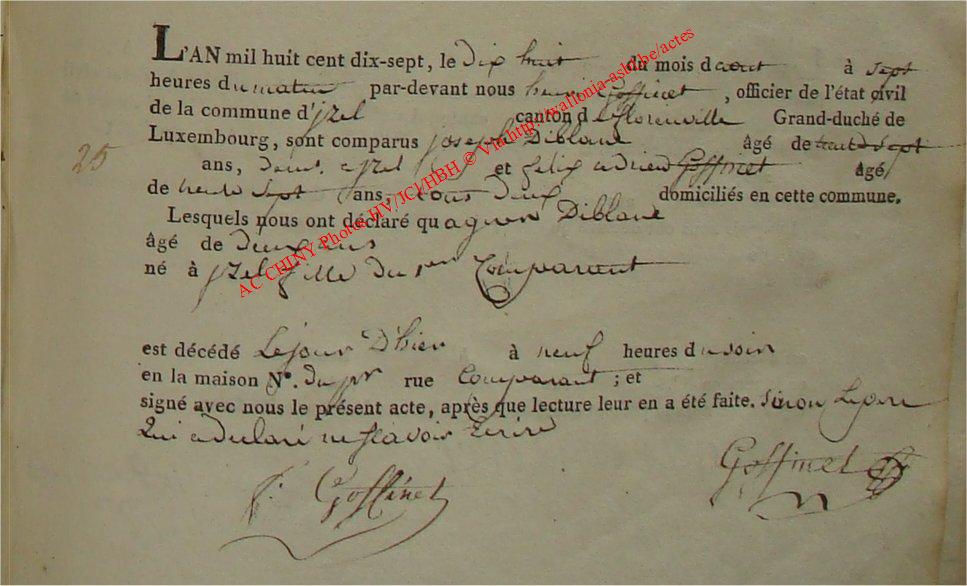 L'AN mil huit cent dix-sept, le dix huit du mois d'aout à sept
heures du matin par-devant nous henri Goffinet, officier de l'état civil
de la commune d'jzel canton de florenville Grand-duché de
Luxembourg, sont comparus joseph Diblane âgé de trente sept
25
ans, dem. a jzel et felix adrien Goffinet âgé
de trente sept ans, tous deux domiciliés en cette commune.
Lesquels nous ont déclaré qu agnes Diblane
âgé de deux ans
né à jzel fille du 1er Comparant
est décédé Le jour D'hier à neuf heures du soir
en la maison N°. du pr rue Comparant ; et
signé avec nous le présent acte, après que lecture leur en a été faite. Sinon Le pere
Qui a declaré ne scavoir Ecrire
f. Goffinet
Goffinet
AC CHINY Photos HV/JCl/HBH © Via http://wallonia-asbl.be/actes